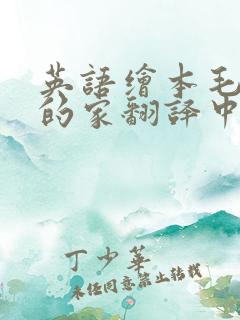 英語繪本毛
的家翻譯中
丁少華
未经同意禁止转载